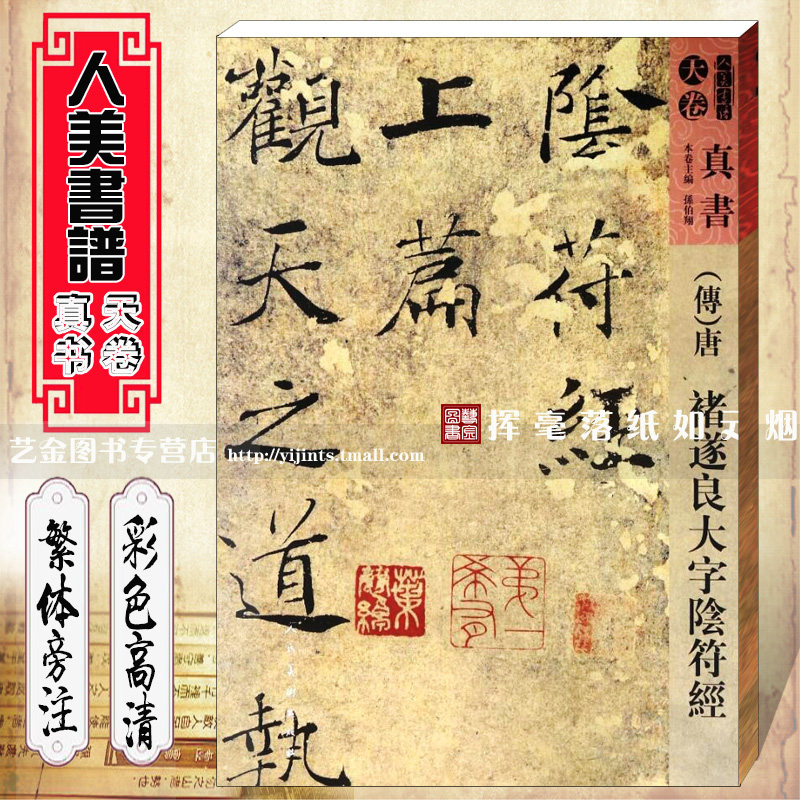 人美書譜
天卷
真书
彩色高清
繁体旁注
艺金图书专营店
http://yijints.tmall.com
挥毫落纸如云烟
陰符經
上篇
觀天之道
執
人美書譜
天卷
真書
本卷主编 孫伯翔
(傳)唐
褚遂良大字陰符經